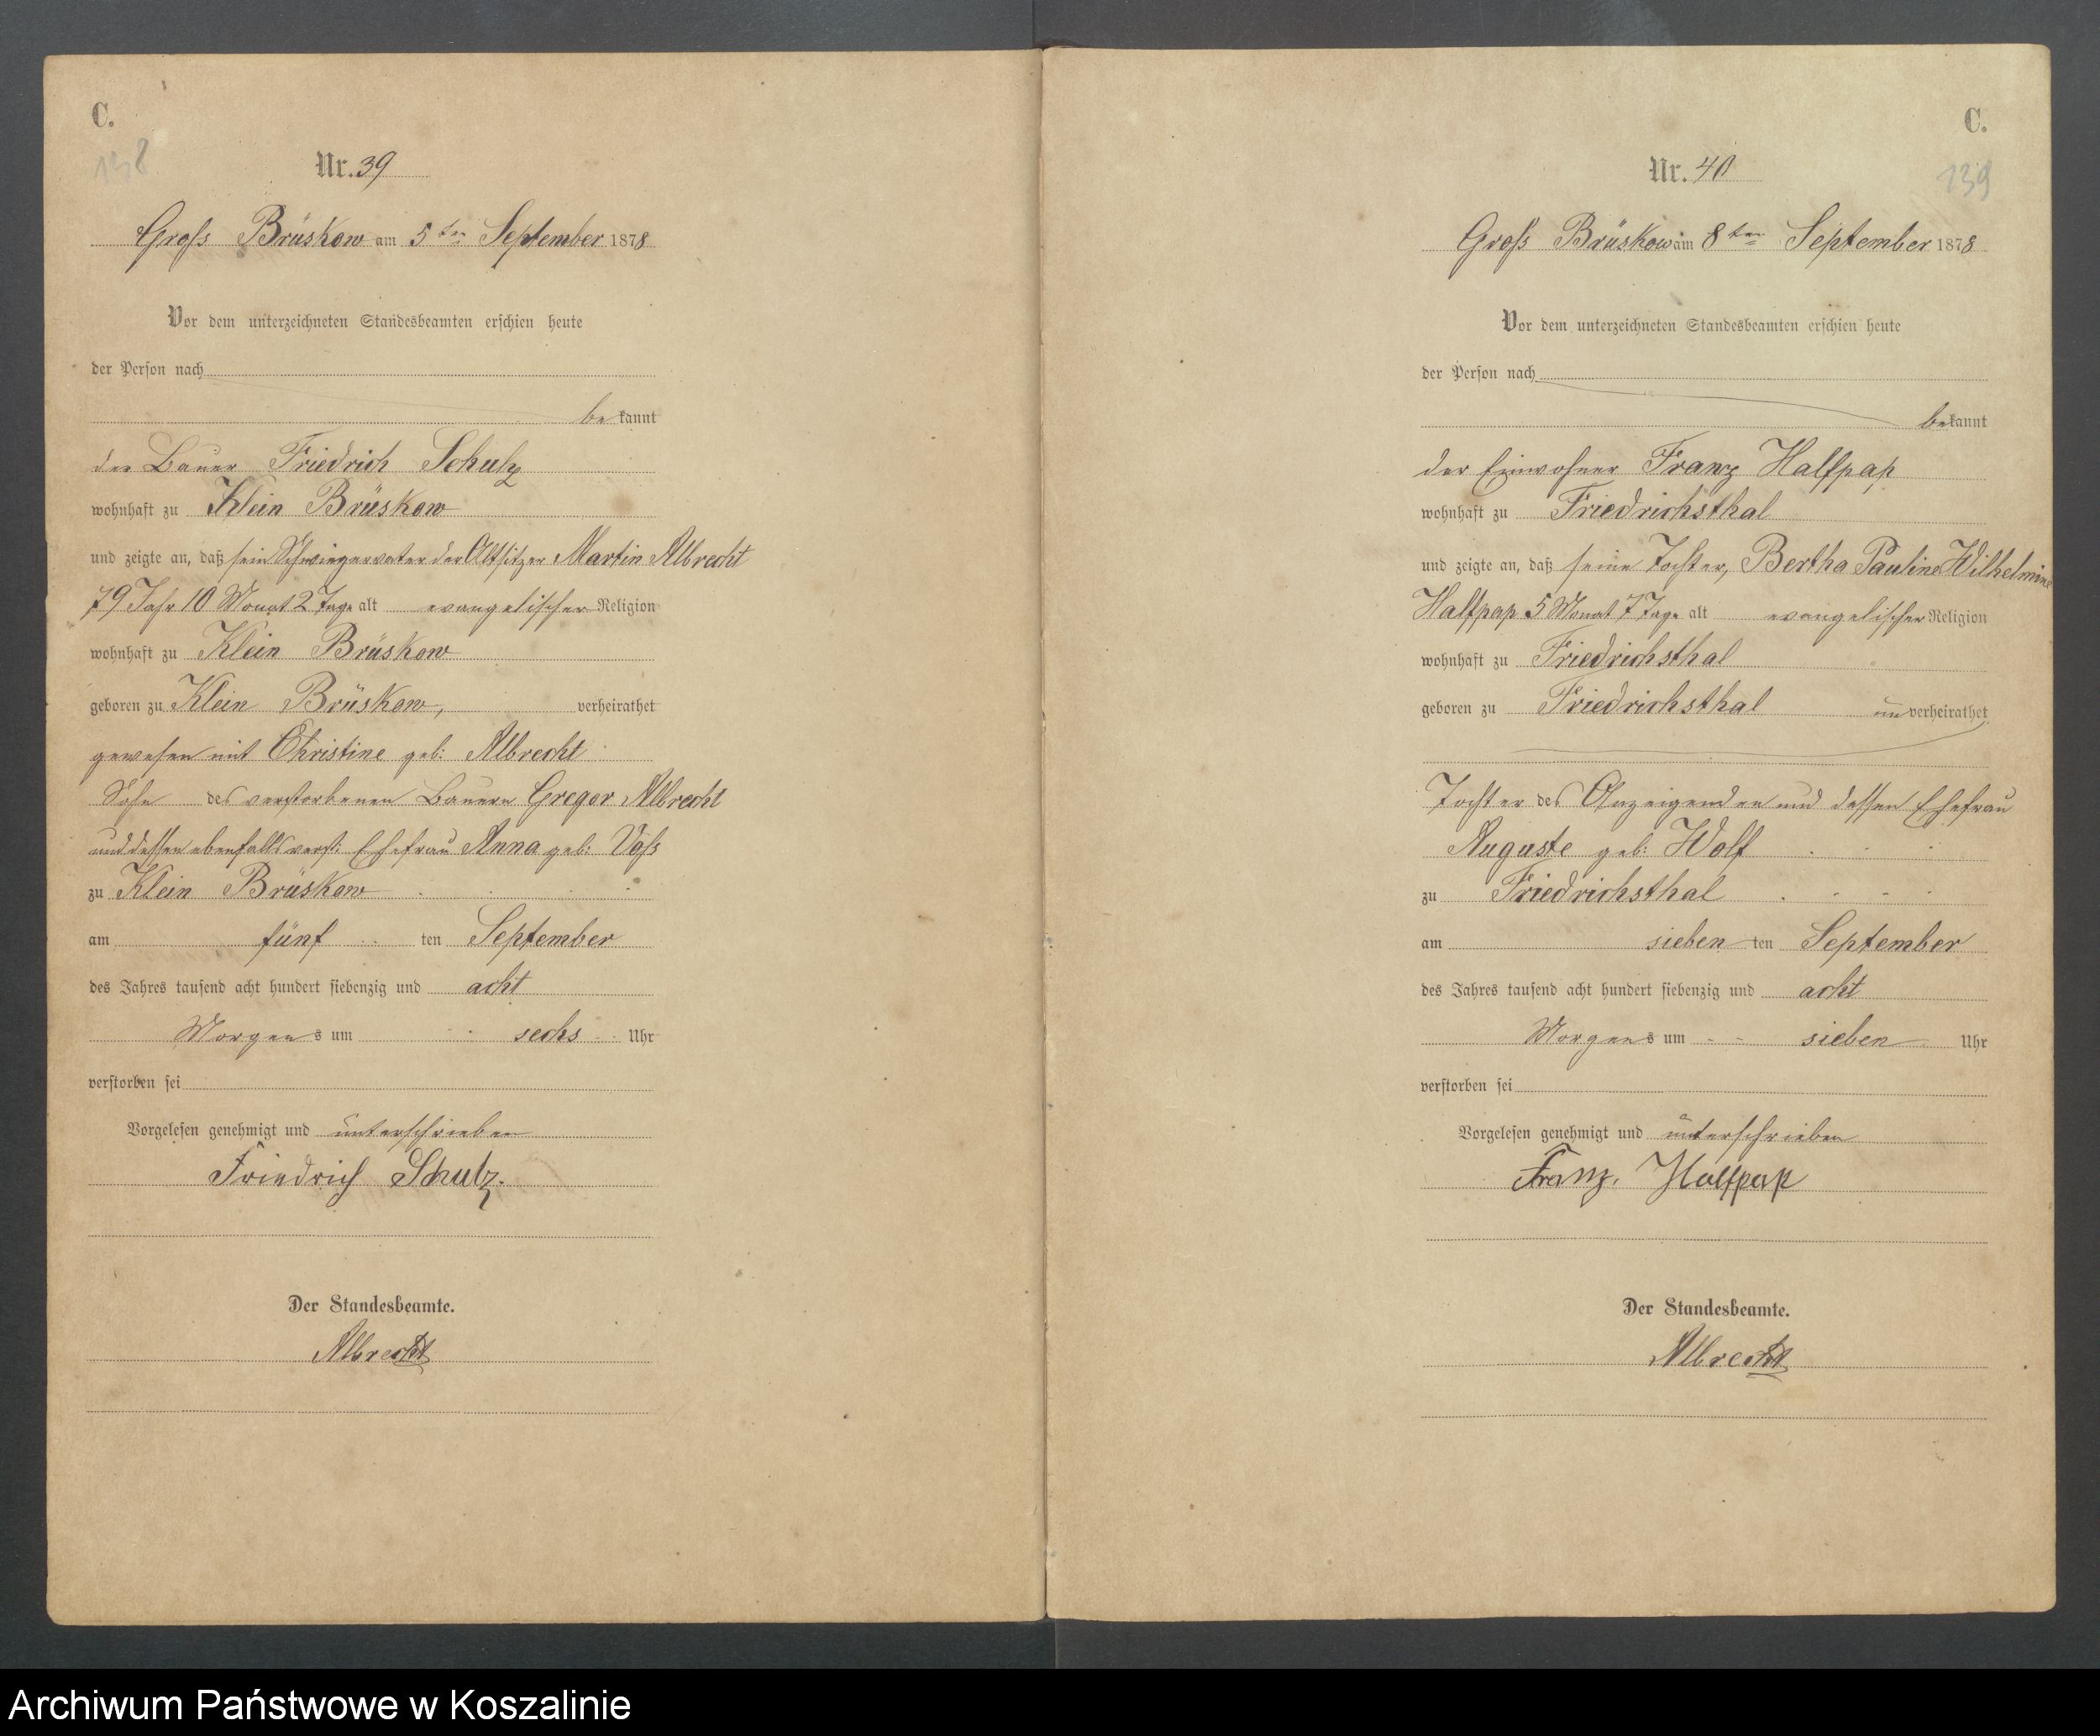 C.
138
Nr. 39
Groß Brüskow am 5ten September 1878
Vor dem unterzeichneten Standesbeamten erschien heute
der Person nach
bekannt
der Bauer Friedrich Schulz
wohnhaft zu Klein Brüskow
und zeigte an, daß sein Schwiegervater der Altsitzer Martin Albrecht
79 Jahr 10 Monat 2 Tage alt evangelischer Religion
wohnhaft zu Klein Brüskow
geboren zu Klein Brüskow, verheirathet
gewesen mit Christine geb: Albrecht
Sohn des verstorbenen Bauern Gregor Albrecht
und dessen ebenfalls verst: Ehefrau Anna geb: Voß
zu Klein Brüskow
am fünf ten September
des Jahres tausend acht hundert siebenzig und acht
Morgens um sechs Uhr
verstorben sei
Vorgelesen genehmigt und unterschrieben
Friedrich Schulz.
Der Standesbeamte.
Albrecht
C.
139
Nr. 40
Groß Brüskow am 8ten September 1878
Vor dem unterzeichneten Standesbeamten erschien heute
der Person nach
bekannt
der Einwohner Franz Halfpap
wohnhaft zu Friedrichsthal
und zeigte an, daß seine Tochter, Bertha Pauline Wilhelmine
Halfpap 5 Monat 7 Tage alt evangelischer Religion
wohnhaft zu Friedrichsthal
geboren zu Friedrichsthal unverheirathet
Tochter des Anzeigenden und dessen Ehefrau
Auguste geb: Wolf
zu Friedrichsthal
am sieben ten September
des Jahres tausend acht hundert siebenzig und acht
Morgens um sieben Uhr
verstorben sei
Vorgelesen genehmigt und unterschrieben
Franz. Halfpap
Der Standesbeamte.
Albrecht
Archiwum Państwowe w Koszalinie